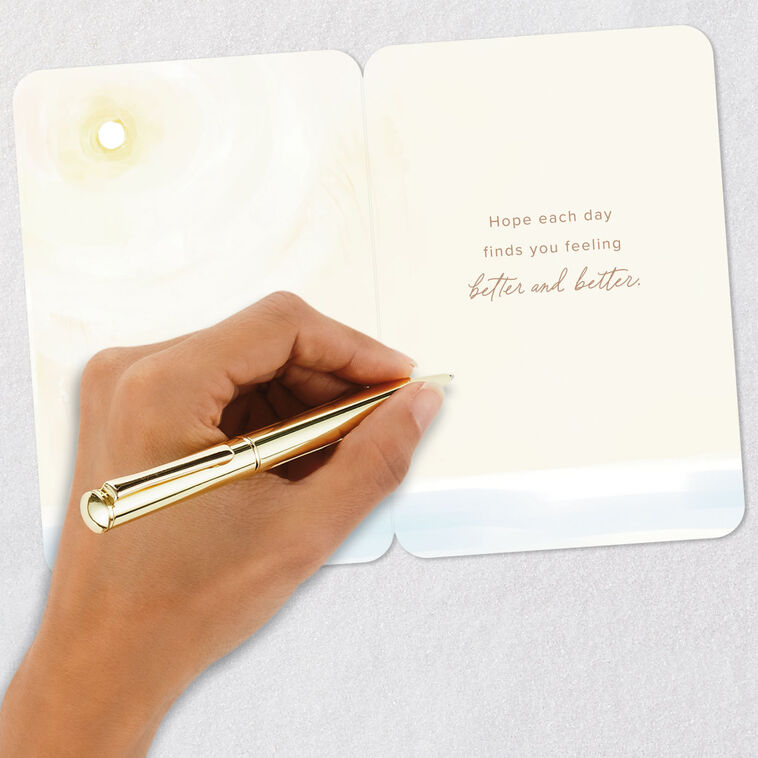 Hope each day
finds you feeling
better and better.